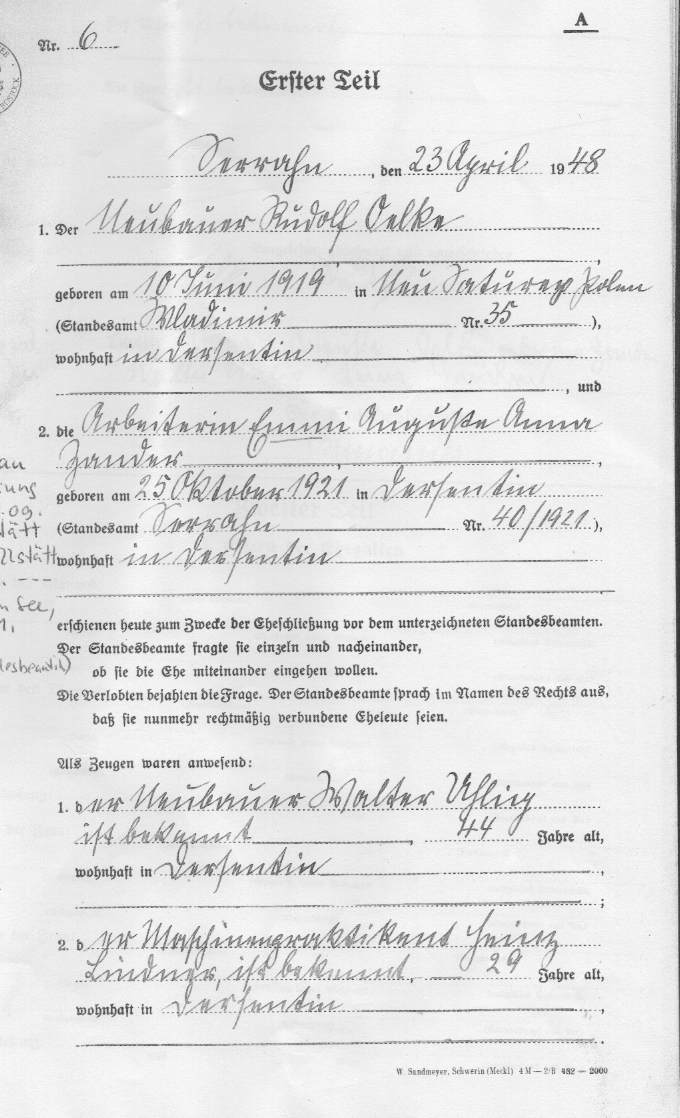 A
Nr. 6
Erster Teil
Serrahn, den 23 April 1948
1. Der Neubauer Rudolf Oelke
geboren am 10 Juni 1919 in Neu Saturez Polen
(Standesamt Wladimir Nr. 35 ),
wohnhaft in Dersentin
, und
2. die Arbeiterin Emmi Auguste Anna
Zander,
geboren am 25 Oktober 1921 in Dersentin
(Standesamt Serrahn Nr. 40/1921 ),
wohnhaft in Dersentin
erschienen heute zum Zwecke der Eheschließung vor dem unterzeichneten Standesbeamten.
Der Standesbeamte fragte sie einzeln und nacheinander,
ob sie die Ehe miteinander eingehen wollen.
Die Verlobten bejahten die Frage. Der Standesbeamte sprach im Namen des Rechts aus,
daß sie nunmehr rechtmäßig verbundene Eheleute seien.
Als Zeugen waren anwesend:
1. der Neubauer Walter Uhlig
ist bekannt, 44 Jahre alt,
wohnhaft in Dersentin,
;
2. der Maschinenpraktikant Heinz
Lindner, ist bekannt, 29 Jahre alt,
wohnhaft in Dersentin,
W. Sandmeyer, Schwerin (Meckl) 4 M — 2/B 482 — 2000